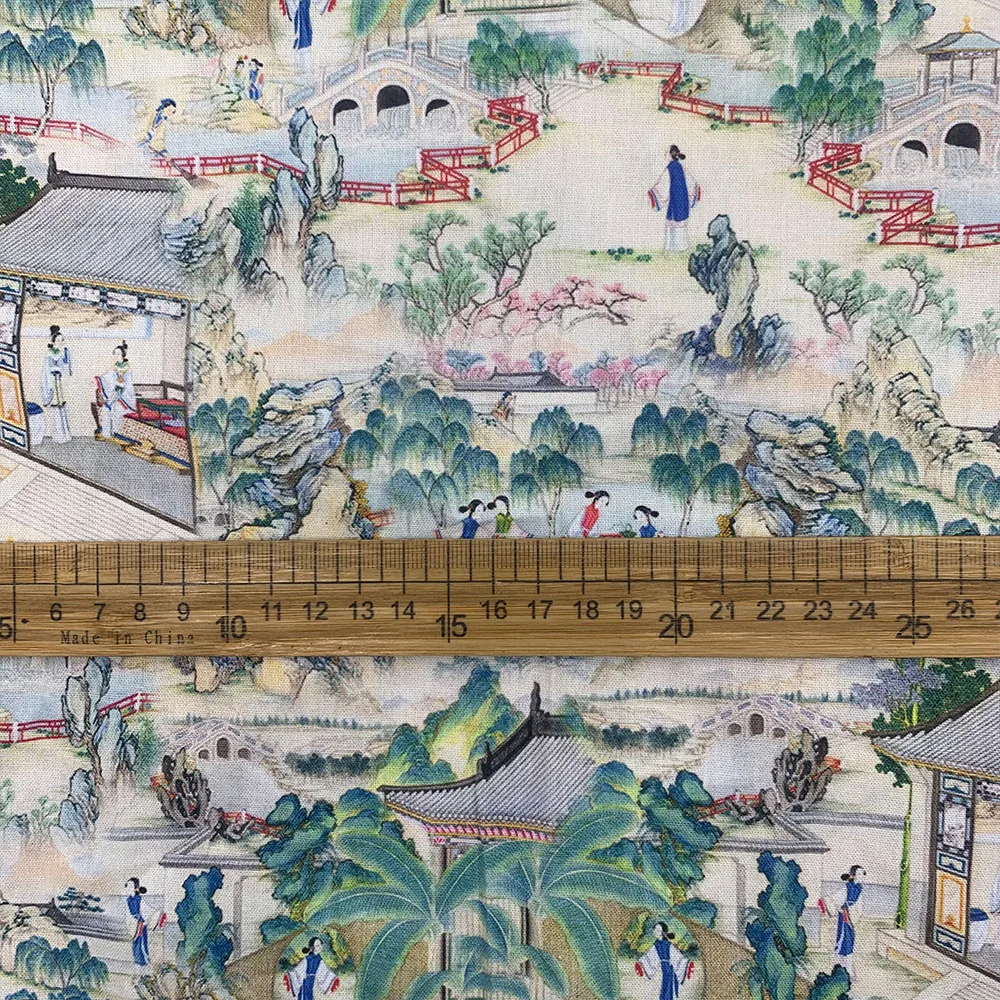 5 6 7 8 9 10 11 12 13 14 15 16 17 18 19 20 21 22 23 24 25 26
Made in China